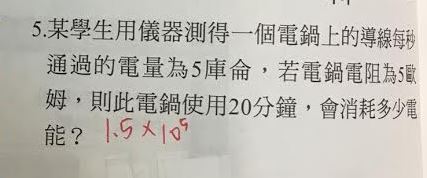 5.某學生用儀器測得一個電鍋上的導線每秒
通過的電量為5庫侖，若電鍋電阻為5歐
姆，則此電鍋使用20分鐘，會消耗多少電
能？ 1.5×10⁵